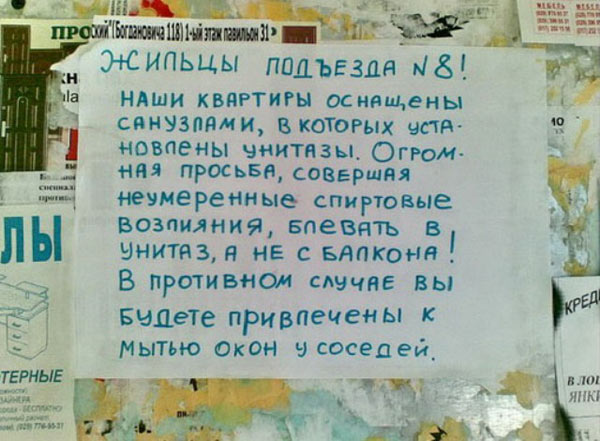 (Богдановича 118) 1-ый этаж павильон 31
ЖИЛЬЦЫ ПОДЪЕЗДА N8!
НАШИ КВАРТИРЫ ОСНАЩЕНЫ
САНУЗЛАМИ, В КОТОРЫХ УСТА-
НОВЛЕНЫ УНИТАЗЫ. ОГРОМ-
НАЯ ПРОСЬБА, СОВЕРШАЯ
НЕУМЕРЕННЫЕ СПИРТОВЫЕ
ВОЗЛИЯНИЯ, БЛЕВАТЬ В
УНИТАЗ, А НЕ С БАЛКОНА!
В ПРОТИВНОМ СЛУЧАЕ ВЫ
БУДЕТЕ ПРИВЛЕЧЕНЫ К
МЫТЬЮ ОКОН У СОСЕДЕЙ.
ЛЫ
ТЕРНЫЕ
МЕБЕЛЬ
КРЕД